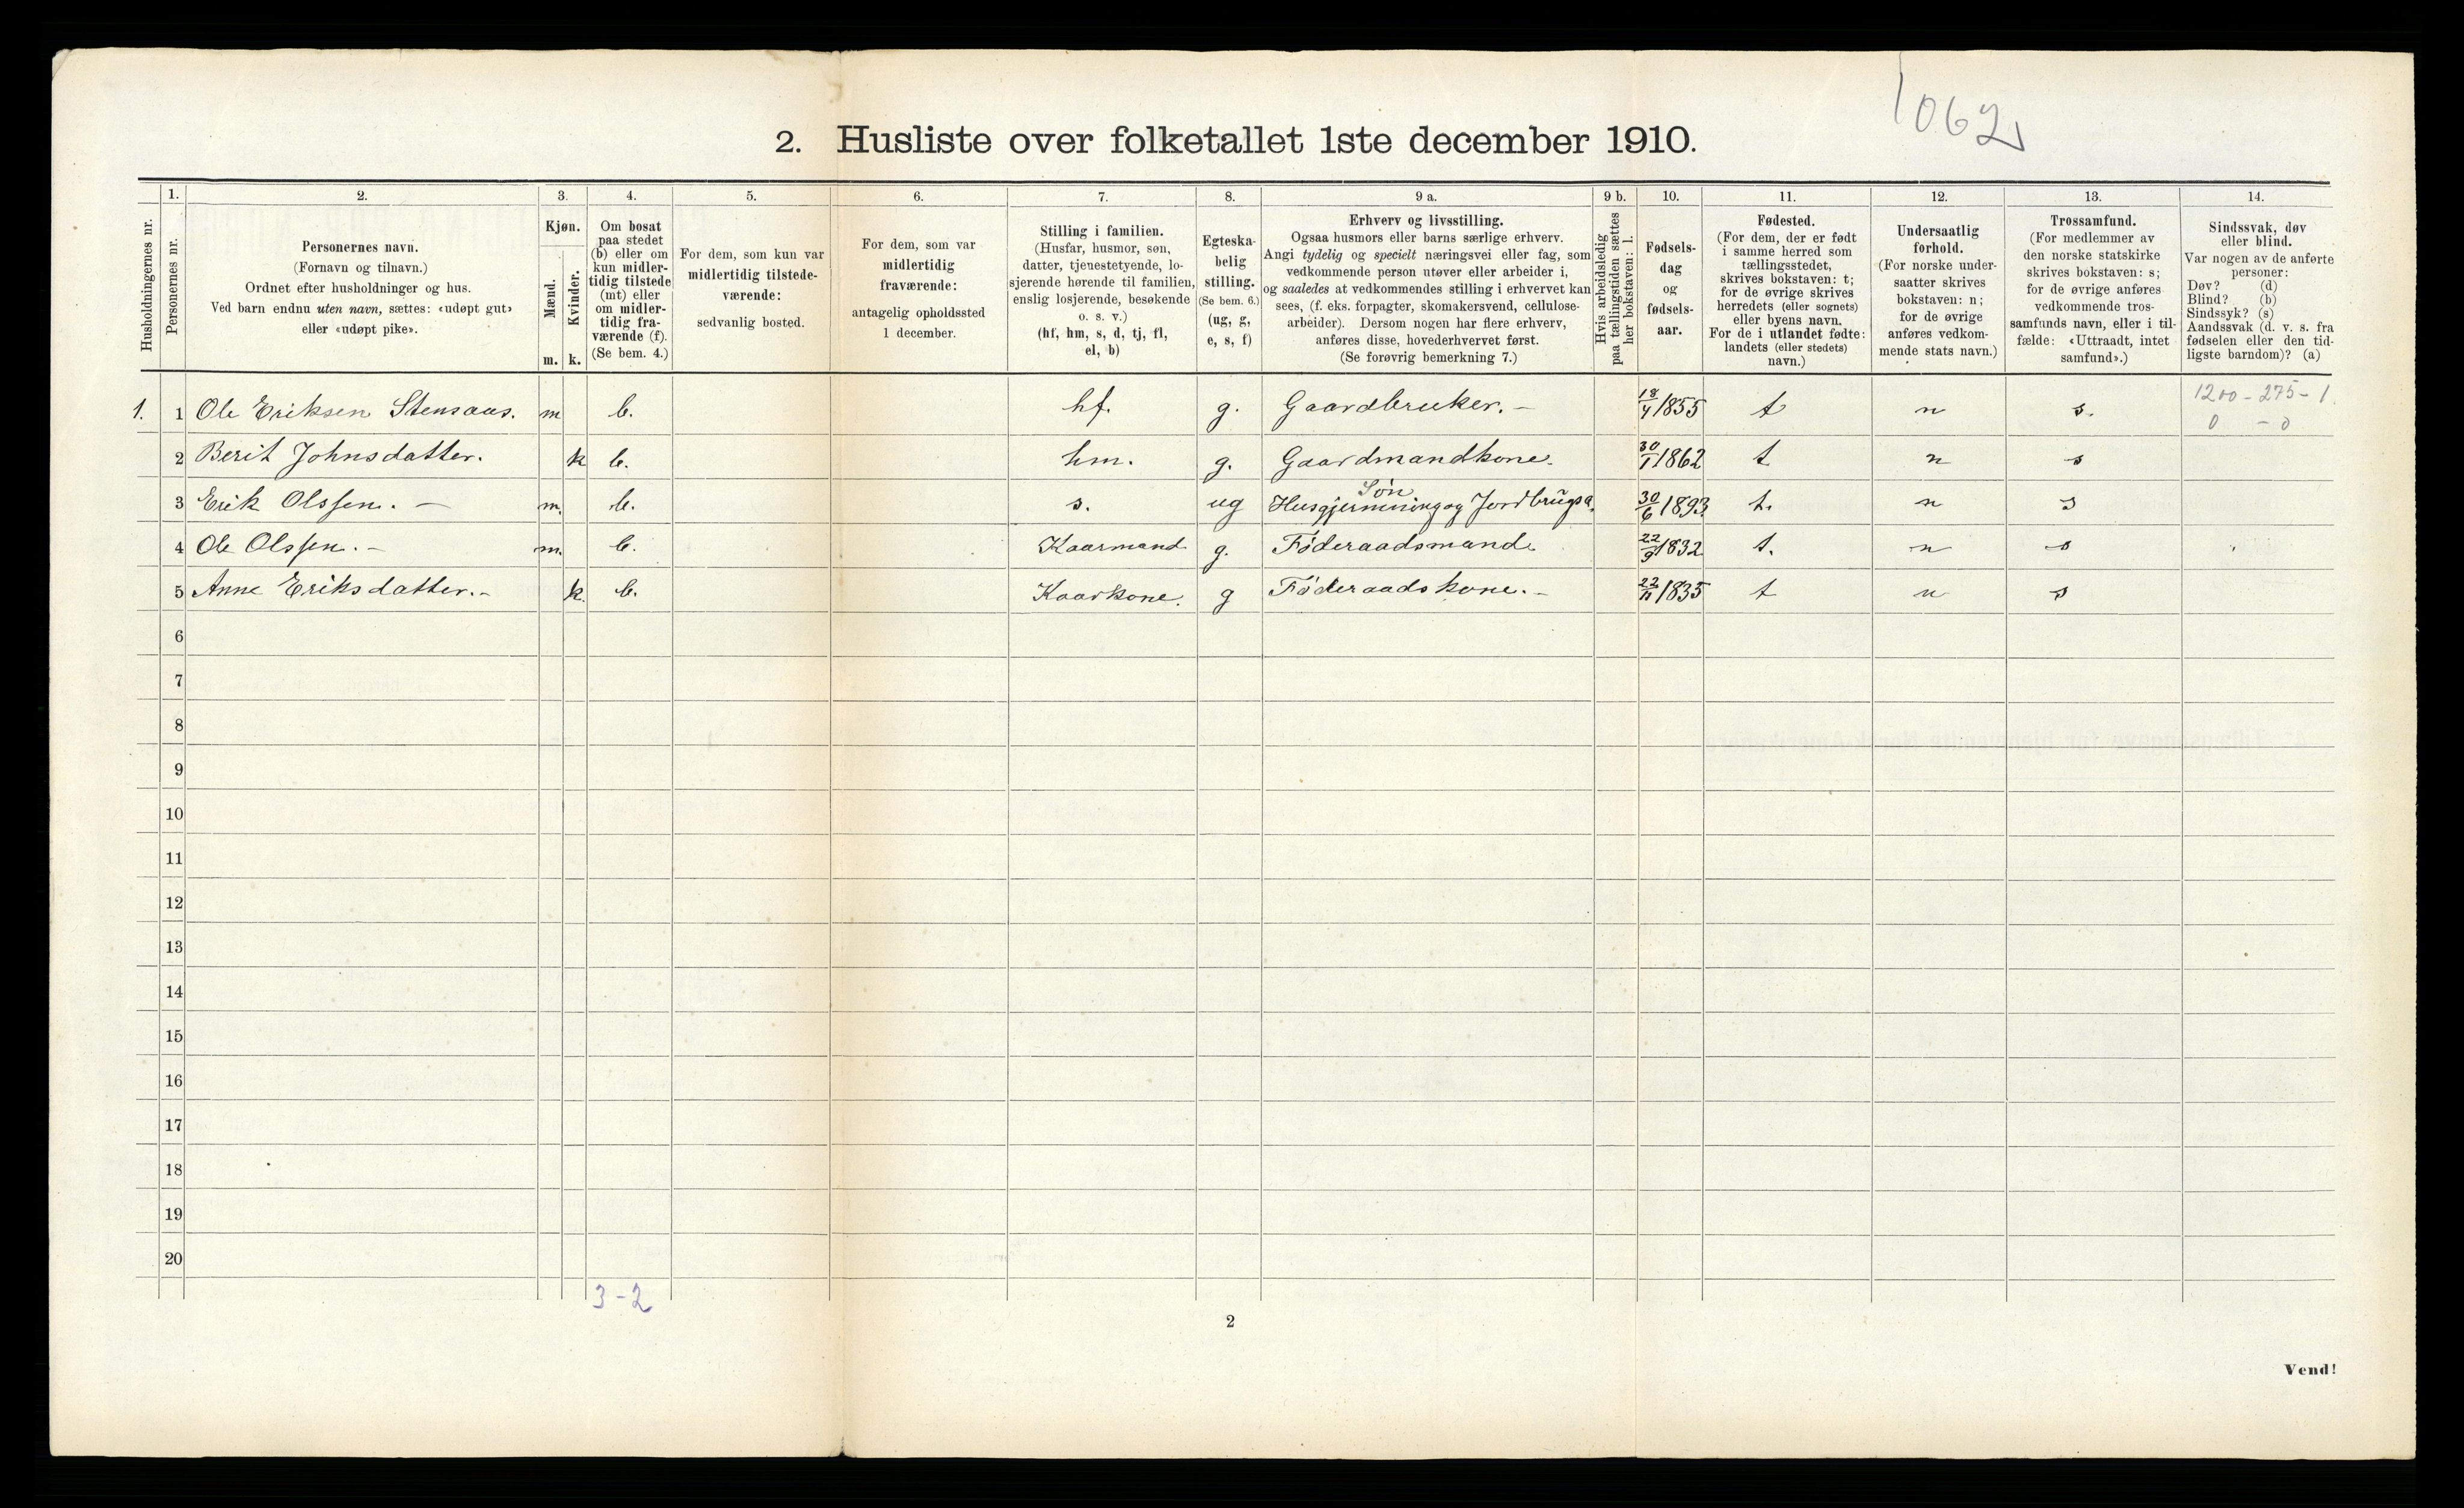 1062
2. Husliste over folketallet 1ste december 1910.
Husholdningernes nr.
1. Personernes nr.
2. Personernes navn. (Fornavn og tilnavn.) Ordnet efter husholdninger og hus. Ved barn endnu uten navn, sættes: «udøpt gut» eller «udøpt pike».
3. Kjøn. Mænd. m. Kvinder. k.
4. Om bosat paa stedet (b) eller om kun midlertidig tilstede (mt) eller om midlertidig fraværende (f). (Se bem. 4.)
5. For dem, som kun var midlertidig tilstedeværende: sedvanlig bosted.
6. For dem, som var midlertidig fraværende: antagelig opholdssted 1 december.
7. Stilling i familien. (Husfar, husmor, søn, datter, tjenestetyende, losjerende hørende til familien, enslig losjerende, besøkende o. s. v.) (hf, hm, s, d, tj, fl, el, b)
8. Egteskabelig stilling. (Se bem. 6.) (ug, g, e, s, f)
9 a. Erhverv og livsstilling. Ogsaa husmors eller barns særlige erhverv. Angi tydelig og specielt næringsvei eller fag, som vedkommende person utøver eller arbeider i, og saaledes at vedkommendes stilling i erhvervet kan sees, (f. eks. forpagter, skomakersvend, cellulosearbeider). Dersom nogen har flere erhverv, anføres disse, hovederhvervet først. (Se forøvrig bemerkning 7.)
9 b. Hvis arbeidsledig paa tællingstiden sættes her bokstaven: l.
10. Fødselsdag og fødselsaar.
11. Fødested. (For dem, der er født i samme herred som tællingsstedet, skrives bokstaven: t; for de øvrige skrives herredets (eller sognets) eller byens navn. For de i utlandet fødte: landets (eller stedets) navn.)
12. Undersaatlig forhold. (For norske undersaatter skrives bokstaven: n; for de øvrige anføres vedkommende stats navn.)
13. Trossamfund. (For medlemmer av den norske statskirke skrives bokstaven: s; for de øvrige anføres vedkommende trossamfunds navn, eller i tilfælde: «Uttraadt, intet samfund».)
14. Sindssvak, døv eller blind. Var nogen av de anførte personer: Døv? (d) Blind? (b) Sindssyk? (s) Aandssvak (d. v. s. fra fødselen eller den tidligste barndom)? (a)
1. 1 Ole Eriksen Stensaas. m b. hf. g. Gaardbruker. 18/4 1855 t n s. 1200 - 275 - 1. 0 - 0
2 Berit Johnsdatter. k b. hm. g. Gaardmandkone. 30/1 1862 t n s
3 Erik Olssen. m. b. s. ug Søn Husgjerning og Jordbrugsa. 30/6 1893 t. n s
4 Ole Olssen. m. b. Kaarmand g. Føderaadsmand. 22/9 1832 t. n s
5 Anne Eriksdatter. k. b. Kaarkone. g Føderaadskone. 22/11 1835 t n s
6
7
8
9
10
11
12
13
14
15
16
17
18
19
20
3-2
2
Vend!